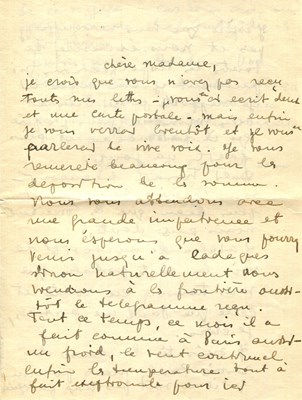 chère madame,
je crois que vous n'avez pas reçu
touts mes lettres - je vous ai ecrit deux
et une carte postale - mais enfin
je vous verrai bientôt et je vous
parlerai de vive voix. Je vous
remercie beaucoup pour la
deposition de la somme.
Nous vous attendons avec
une grande impatience et
nous éspérons que vous pourrez
venir jusqu'à Cadaques
sinon naturellement nous
viendrons à la frontière aussi-
tôt le telegramme reçu.
Tout ce temps, ce mois il a
fait comme à Paris aussi-
un froid, le vent continuel
enfin la temperature tout à
fait exeptionale pour ici